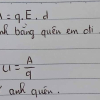 A = q.E.d
anh bằng quên em đi
U = A/q
anh quên.